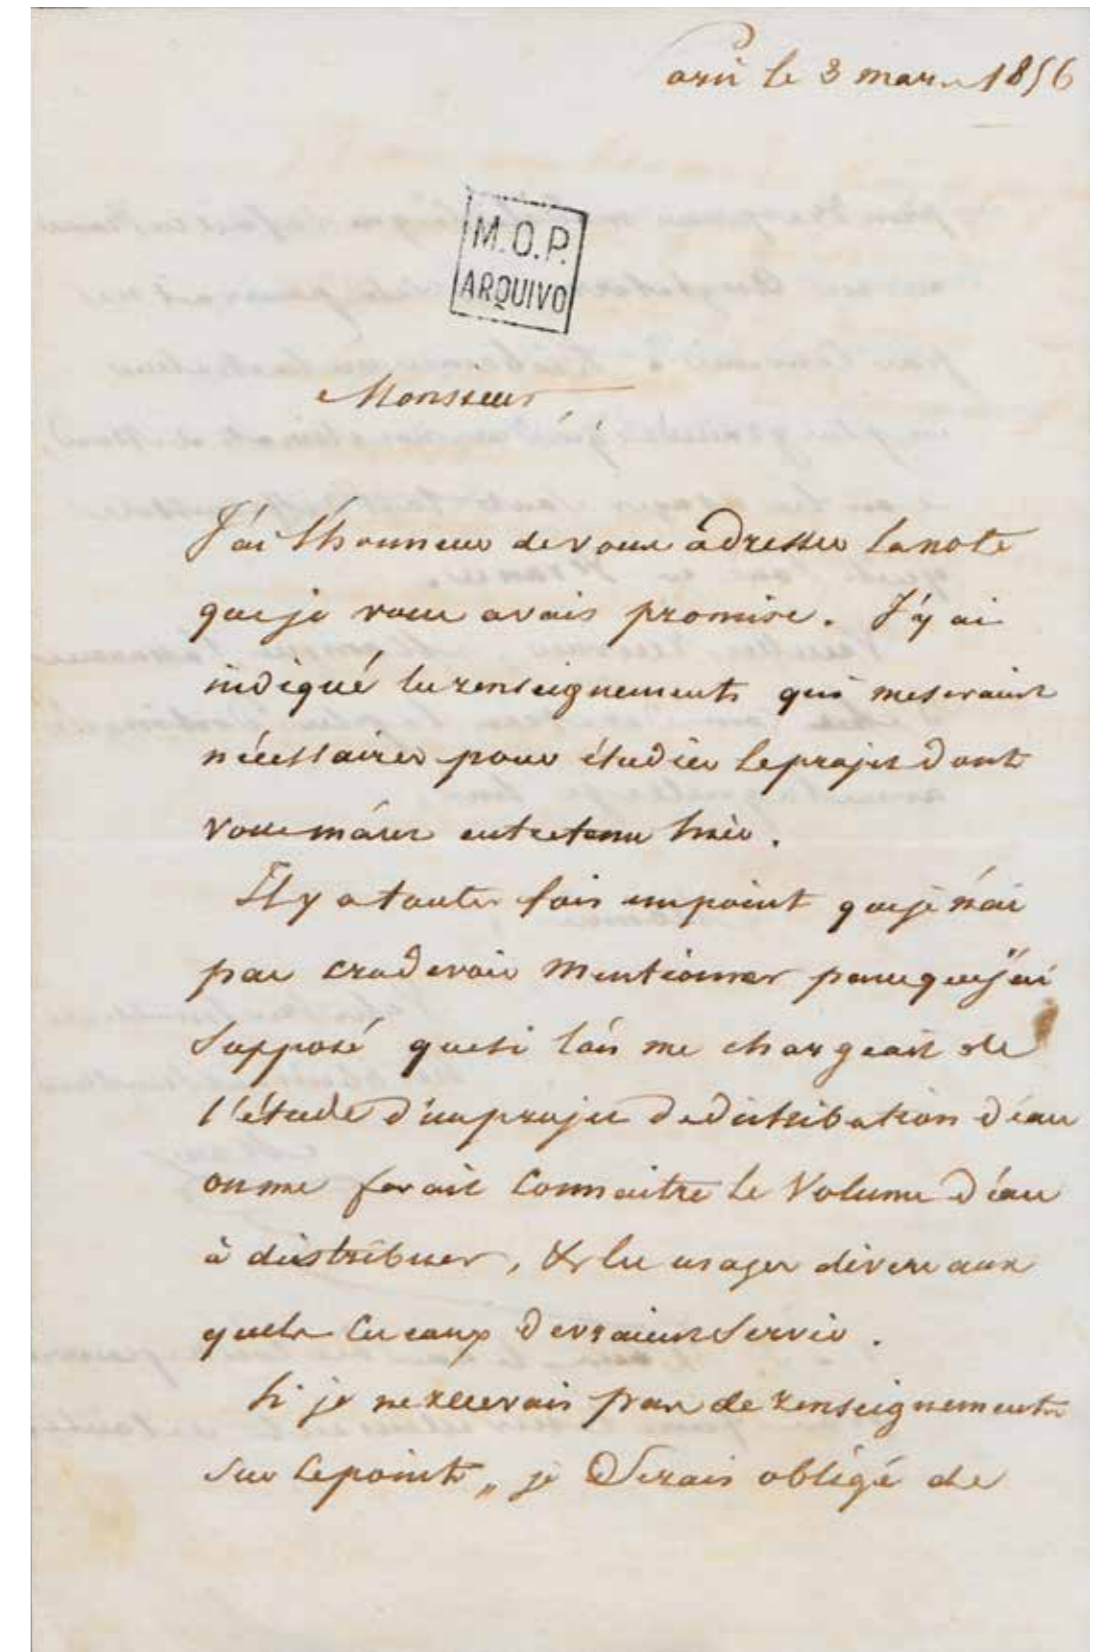 Paris le 3 mars 1856
M.O.P.
ARQUIVO
Monsieur
J'ai l'honneur de vous adresser la note
que je vous avais promise. J'y ai
indiqué les renseignements qui me seraient
nécessaires pour étudier le projet dont
vous m'avez entretenu hier.
Il y a toutes fois un point que je n'ai
pas cru devoir mentionner parce que j'ai
supposé que si l'on me chargeait de
l'étude d'un projet de distribution d'eau
on me ferait connaitre le volume d'eau
à distribuer, & les usages divers aux
quels ces eaux devraient servir.
Si je ne recevais pas de renseignements
sur ce point,, je serais obligé de